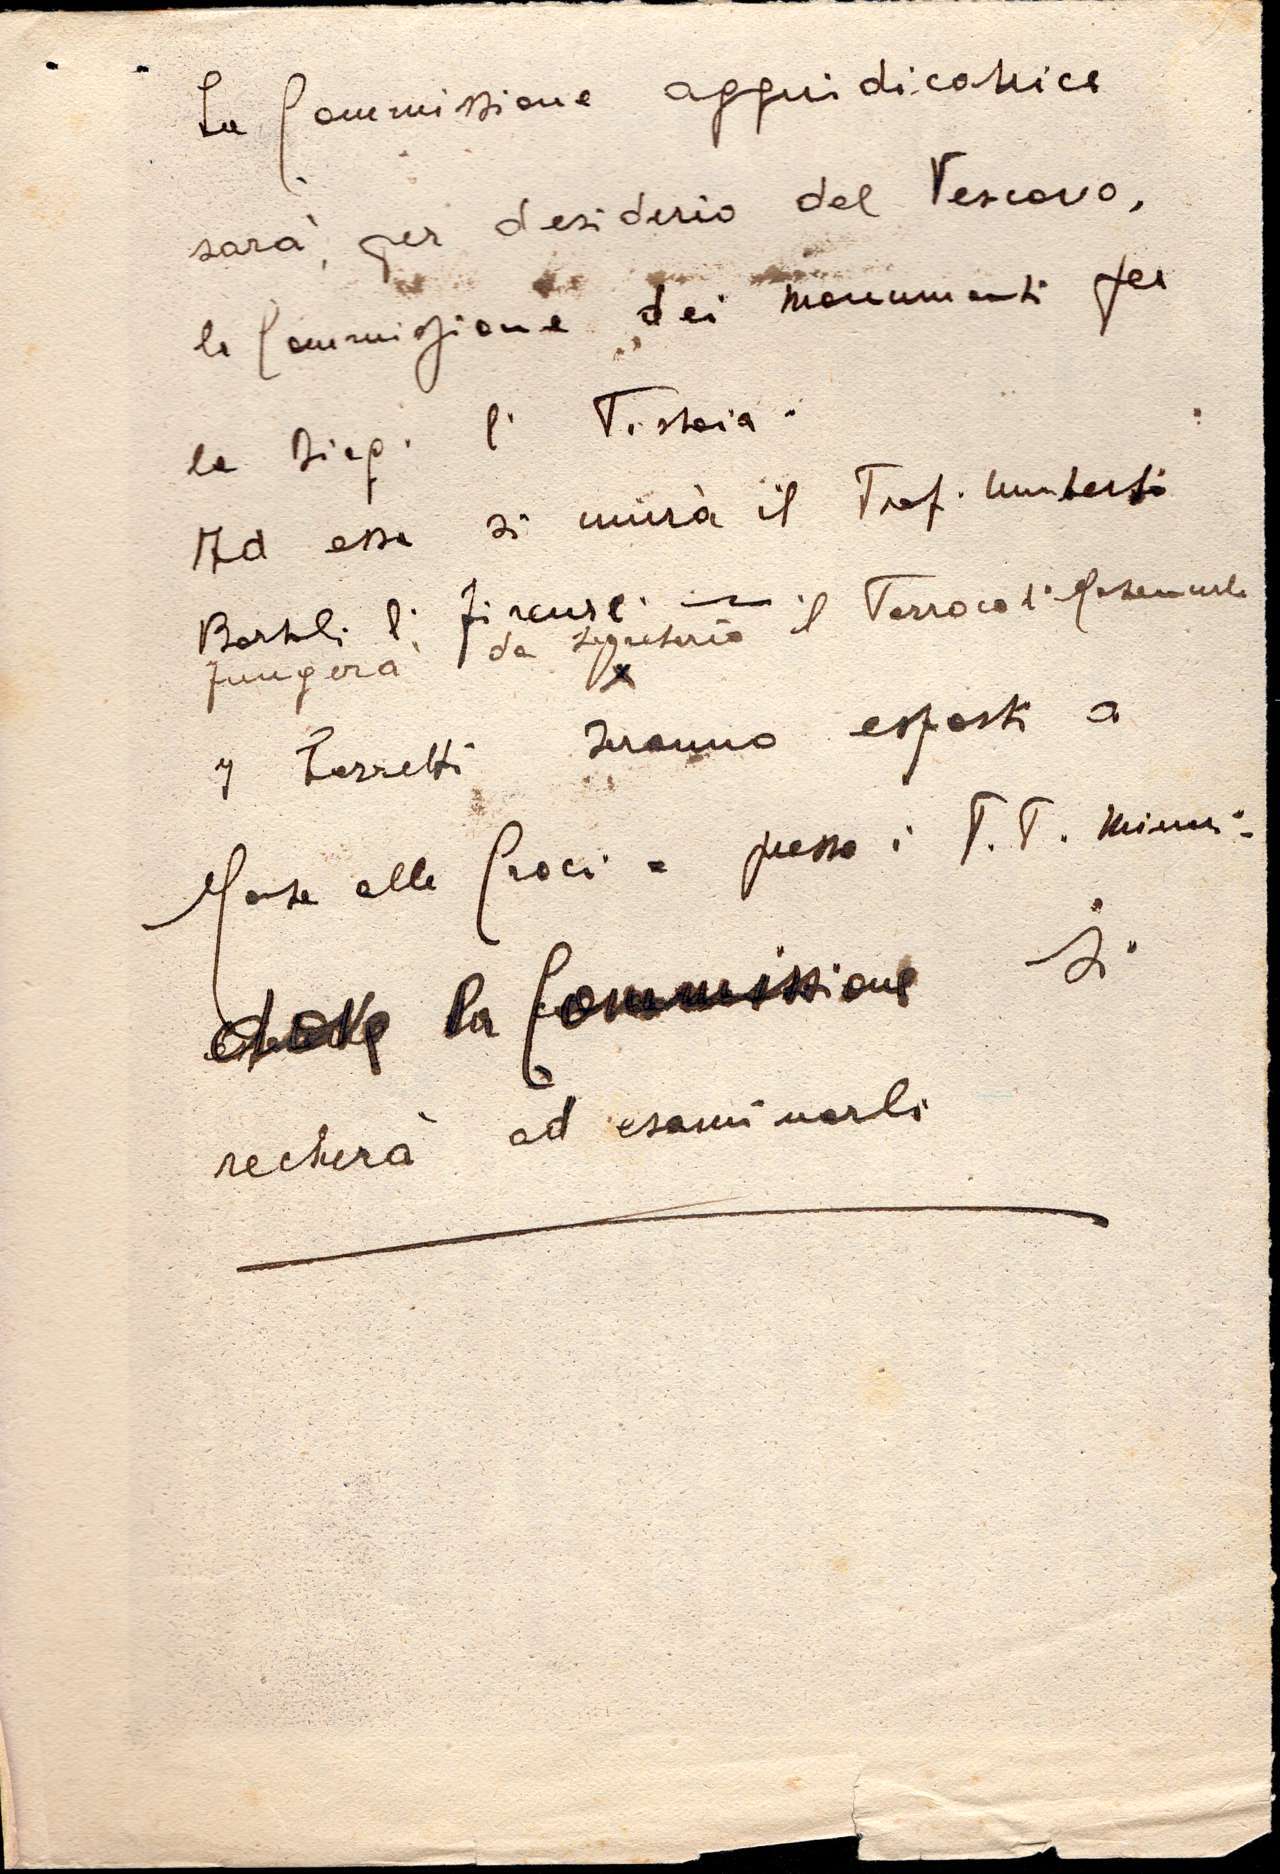 La Commissione aggiudicatrice
sarà, per desiderio del Vescovo,
la Commissione dei monumenti per
la Diog. di Pistoia.
Ad essa si unirà il Prof. Umberto
Bartoli di Firenze. — il Parroco di
fungerà da segretario
I Bozzetti saranno esposti a
Monte alle Croci = presso i P.P. Minori =
dove la Commissione si
recherà ad esaminarli